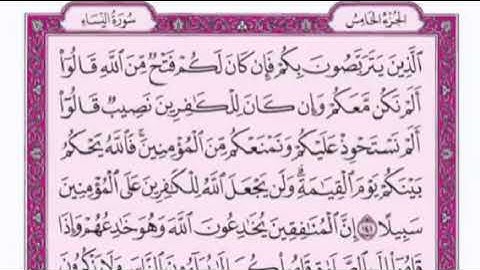 سُورَةُ النِّسَاءِ الجُزْءُ الخَامِسُ
ٱلَّذِينَ يَتَرَبَّصُونَ بِكُمْ فَإِن كَانَ لَكُمْ فَتْحٌ مِّنَ ٱللَّهِ قَالُوٓاْ
أَلَمْ نَكُن مَّعَكُمْ وَإِن كَانَ لِلْكَٰفِرِينَ نَصِيبٌ قَالُوٓاْ
أَلَمْ نَسْتَحْوِذْ عَلَيْكُمْ وَنَمْنَعْكُم مِّنَ ٱلْمُؤْمِنِينَ ۚ فَٱللَّهُ يَحْكُمُ
بَيْنَكُمْ يَوْمَ ٱلْقِيَٰمَةِ ۗ وَلَن يَجْعَلَ ٱللَّهُ لِلْكَٰفِرِينَ عَلَى ٱلْمُؤْمِنِينَ
سَبِيلًا ١٤١ إِنَّ ٱلْمُنَٰفِقِينَ يُخَٰدِعُونَ ٱللَّهَ وَهُوَ خَٰدِعُهُمْ وَإِذَا